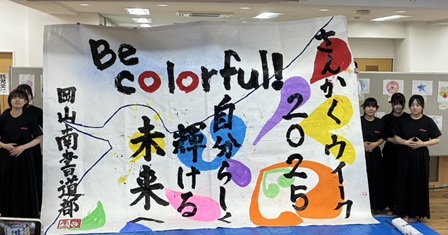 さんかくウィーク
2025
Be
colorful!!
自分らしく
輝ける
未来へ
岡山南書道部